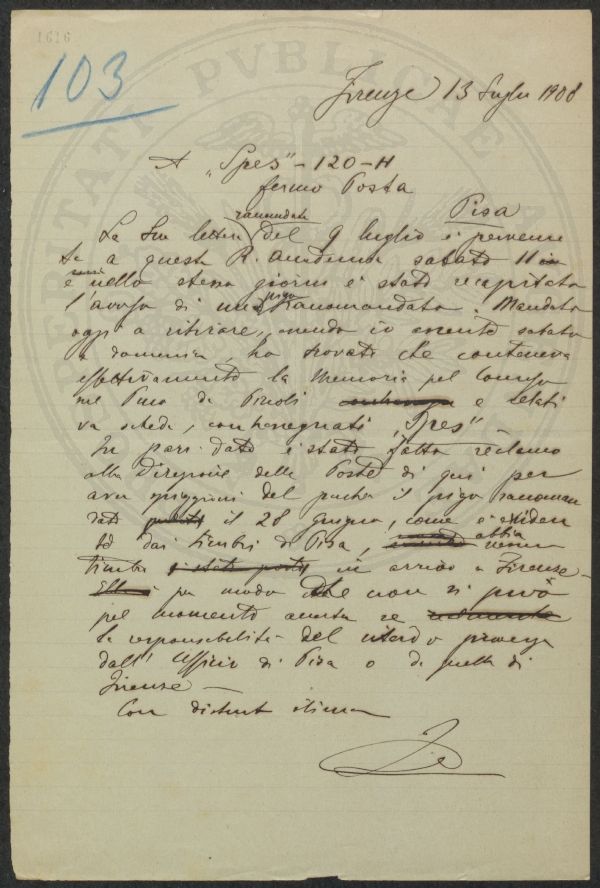 1616
103
Firenze 13 luglio 1908
A "Spes" - 120 - H
fermo Posta
Pisa
raccomandata
La Sua lettera del 9 luglio è pervenu
ta a questa R. Accademia sabato 11
e nello stesso giorno è stato recapitato
l'avviso di un piego Raccomandato. Mandato
oggi a ritirare, essendo sabato
e domenica, ho trovato che conteneva
effettivamente la Memoria pel Concorso
nel Pino da Pinoli e relati
va scheda, contrassegnati "Spes" -
In pari data è stato fatto reclamo
alla Direzione delle Poste di qui per
aver spiegazioni del perchè il piego Raccoman
dato il 28 giugno, come è eviden
te dai timbri di Pisa, abbia nessun
timbro in arrivo a Firenze -
per modo che non si può
pel momento se
la responsabilità del ritardo provenga
dall' Ufficio di Pisa o da quello di
Firenze -
Con distinta stima